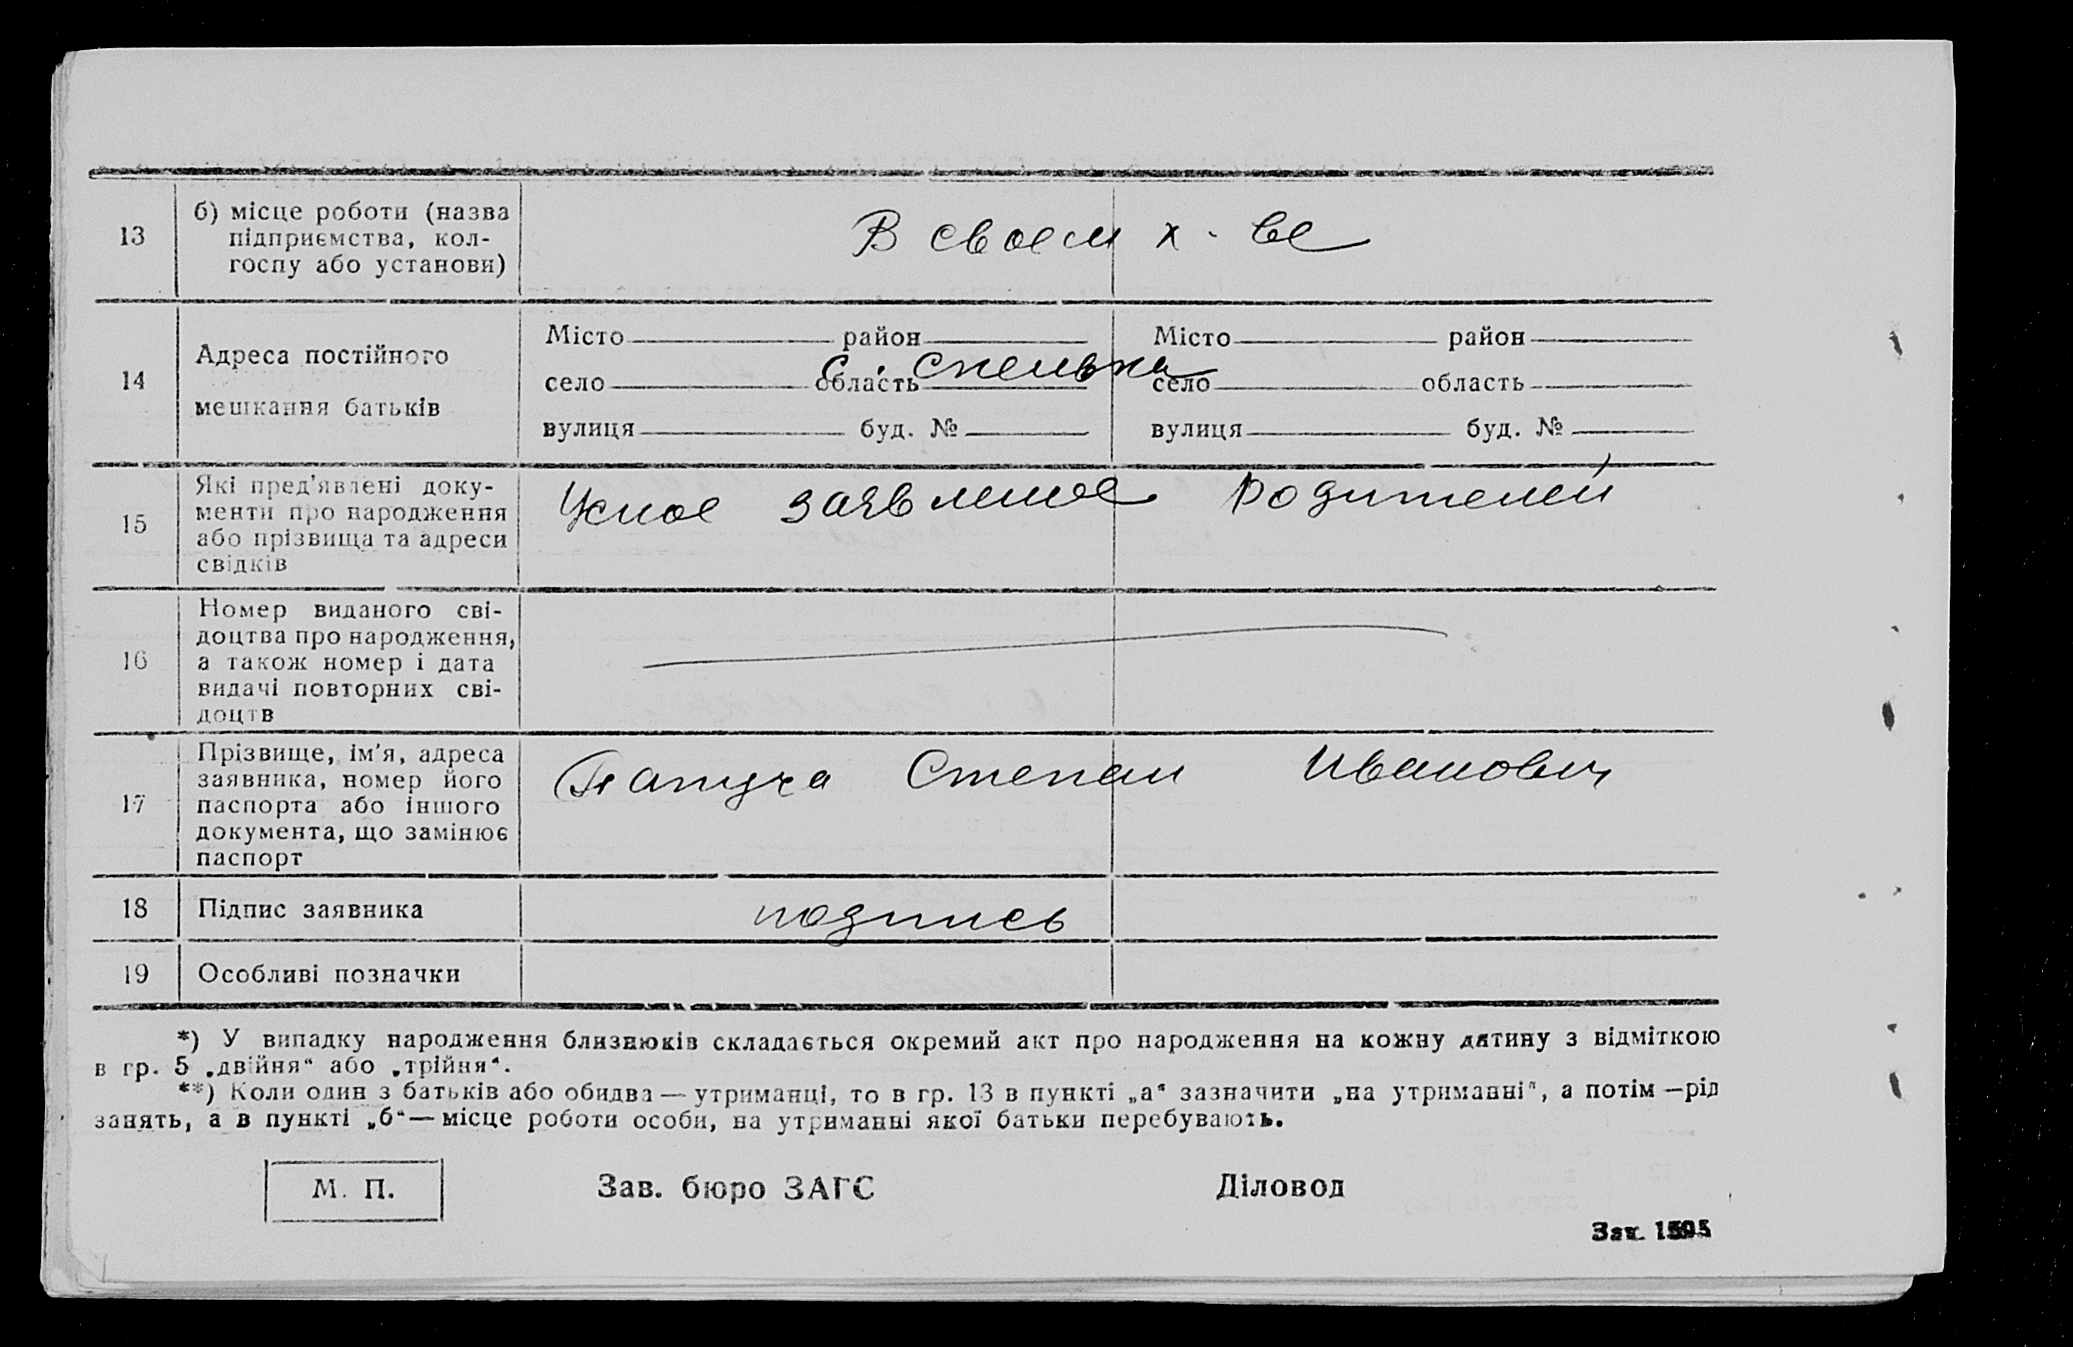 13 б) місце роботи (назва
підприємства, кол-
госпу або установи)
В своем х-ве
14 Адреса постійного
мешкання батьків
Місто район Місто район
село область село область
вулиця буд. № вулиця буд. №
с.
15 Які пред'явлені доку-
менти про народження
або прізвища та адреси
свідків
Усное заявление родителей
16 Номер виданого сві-
доцтва про народження,
а також номер і дата
видачі повторних сві-
доцтв
17 Прізвище, ім'я, адреса
заявника, номер його
паспорта або іншого
документа, що замінює
паспорт
Степан Иванович
18 Підпис заявника
подпись
19 Особливі позначки
*) У випадку народження близнюків складається окремий акт про народження на кожну дитину з відміткою
в гр. 5 „двійня“ або „трійня“.
**) Коли один з батьків або обидва — утриманці, то в гр. 13 в пункті „а“ зазначити „на утриманні“, а потім — рід
занять, а в пункті „б“ — місце роботи особи, на утриманні якої батьки перебувають.
М. П. Зав. бюро ЗАГС Діловод
Зак.